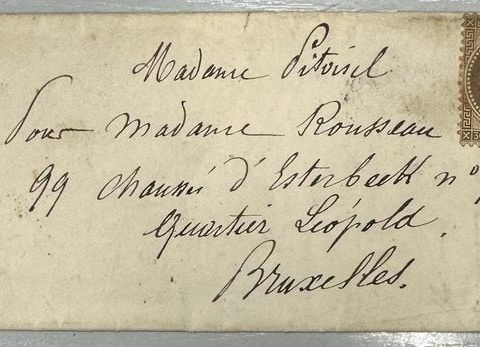 Madame Pitoisel
Pour Madame Rousseau
99 chaussée d'Esterbeek n°
Quartier Léopold.
Bruxelles.